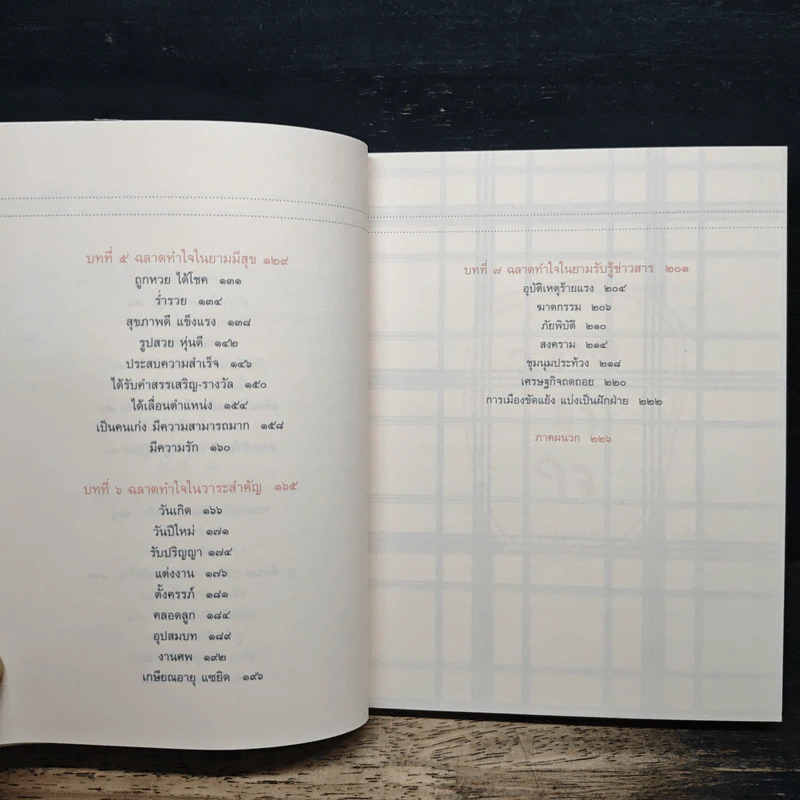 บทที่ ๕ ฉลาดทำใจในยามมีสุข ๑๒๙
ถูกหวย ได้โชค ๑๓๑
ร่ำรวย ๑๓๔
สุขภาพดี แข็งแรง ๑๓๘
รูปสวย หุ่นดี ๑๔๒
ประสบความสำเร็จ ๑๔๖
ได้รับคำสรรเสริญ-รางวัล ๑๕๐
ได้เลื่อนตำแหน่ง ๑๕๔
เป็นคนเก่ง มีความสามารถมาก ๑๕๘
มีความรัก ๑๖๐
บทที่ ๖ ฉลาดทำใจในวาระสำคัญ ๑๖๕
วันเกิด ๑๖๖
วันปีใหม่ ๑๗๑
รับปริญญา ๑๗๔
แต่งงาน ๑๗๖
ตั้งครรภ์ ๑๘๑
คลอดลูก ๑๘๔
อุปสมบท ๑๘๙
งานศพ ๑๙๒
เกษียณอายุ แซยิด ๑๙๖
บทที่ ๗ ฉลาดทำใจในยามรับรู้ข่าวสาร ๒๐๑
อุบัติเหตุร้ายแรง ๒๐๔
ฆาตกรรม ๒๐๖
ภัยพิบัติ ๒๑๐
สงคราม ๒๑๔
ชุมนุมประท้วง ๒๑๘
เศรษฐกิจถดถอย ๒๒๐
การเมืองขัดแย้ง แบ่งเป็นฝักฝ่าย ๒๒๒
ภาคผนวก ๒๒๖